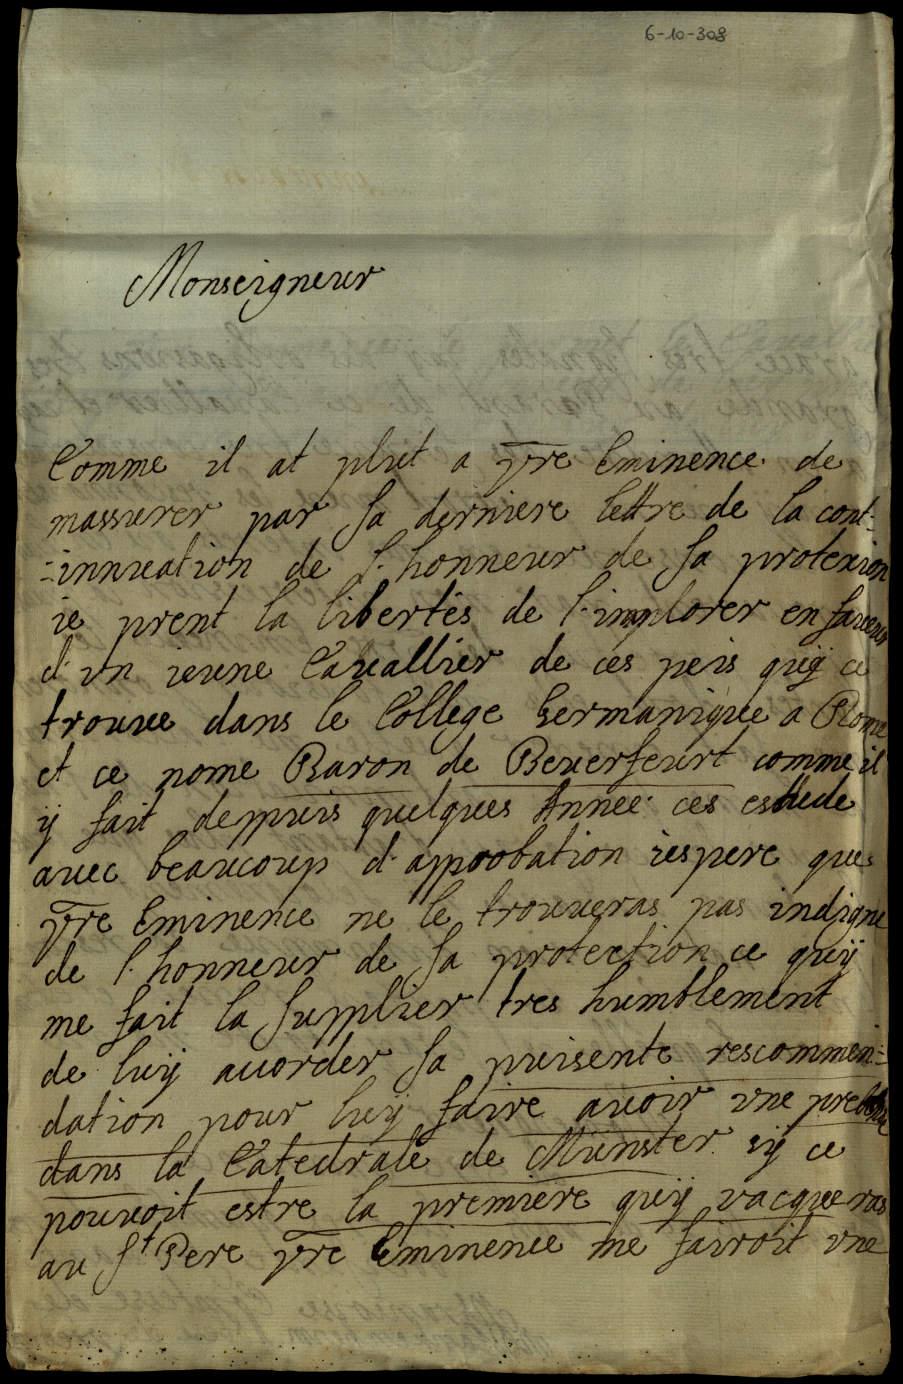 6-10-308
Monseigneur
Comme il at plut a vre Eminence de
massurer par sa derniere lettre de la cont=
=innuation de l'honneur de sa protexion
ie prent la libertés de l'implorer en faveur
d'un ieune Cavallier de ces peis quÿ ce
trouve dans le College Germanique a Rome
et ce nome Baron de Beverfeurt comme il
ÿ fait deppuis quelques Année ces estude
avec beaucoup d'approbation iespere que
vre Eminence ne le trouveras pas indigne
de l'honneur de sa protection ce quÿ
me fait la supplier tres humblement
de luÿ accorder sa puisente rescommen=
dation pour luÿ faire avoir une prebende
dans la Catedrale de Münster sÿ ce
pouvoit estre la premiere quÿ vacqueras
au St Pere vre Eminence me fairoit une